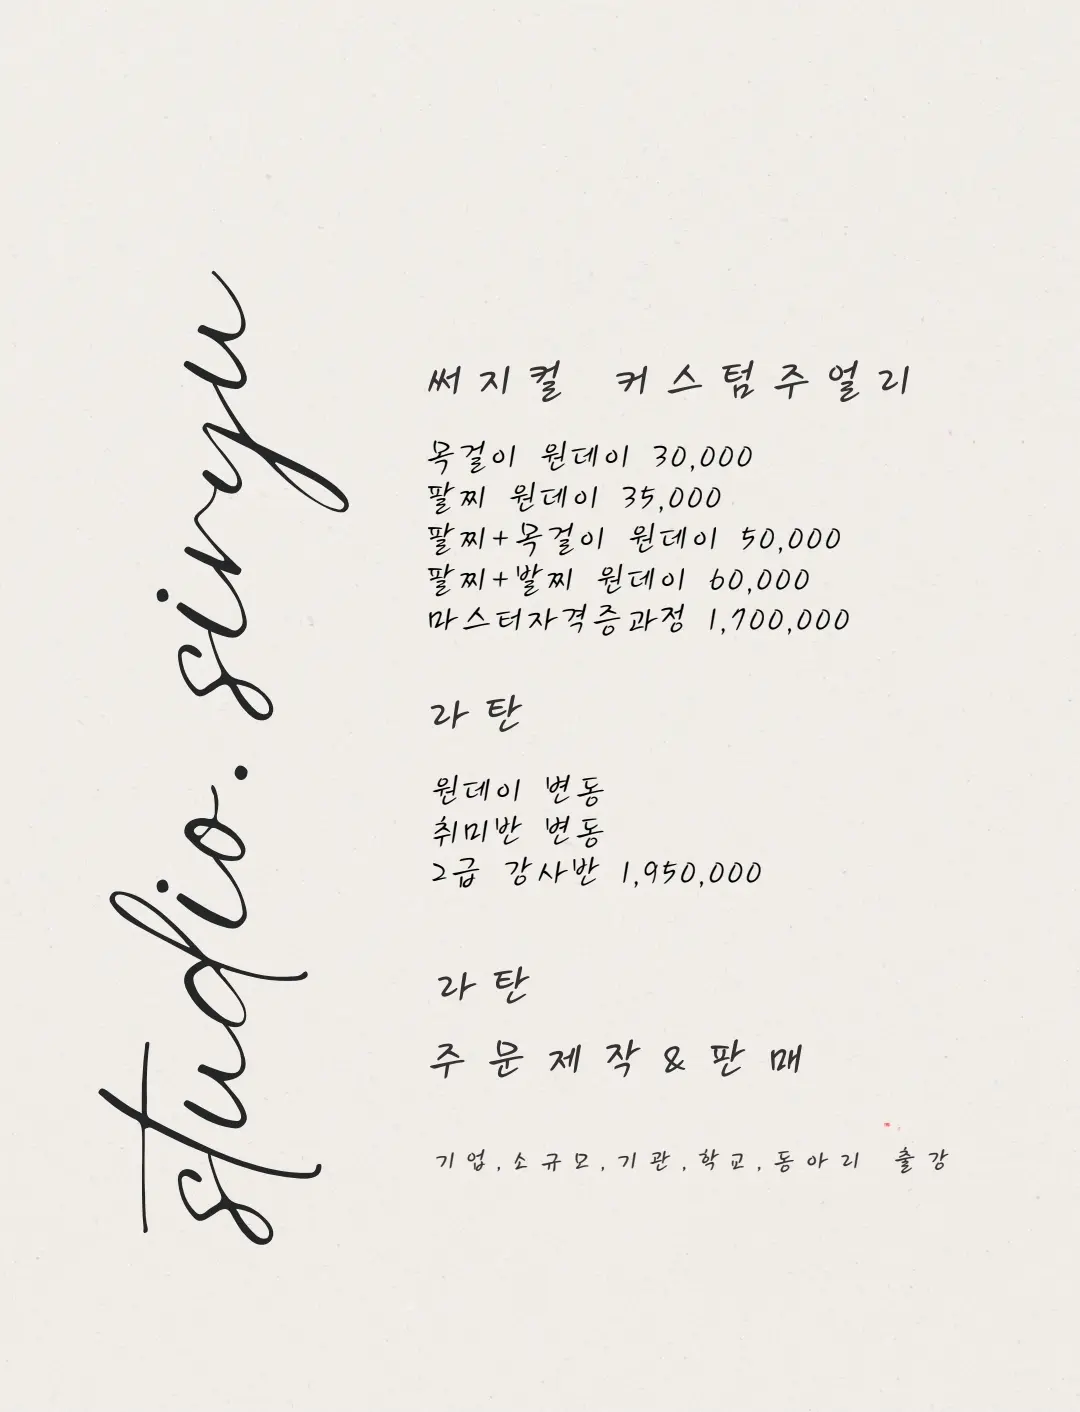 studio. siryu
써지컬 커스텀주얼리
목걸이 원데이 30,000
팔찌 원데이 35,000
팔찌+목걸이 원데이 50,000
팔찌+발찌 원데이 60,000
마스터자격증과정 1,700,000
라탄
원데이 변동
취미반 변동
2급 강사반 1,950,000
라탄
주문제작&판매
기업,소규모,기관,학교,동아리 출강